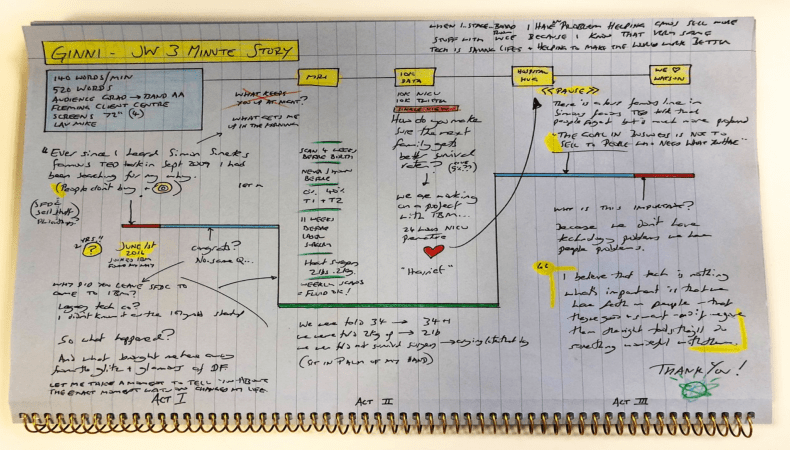 WHEN I STAGE-BOARD I HAVE NO PROBLEM HELPING CANDS SELL MORE
STUFF WITH BECAUSE I KNOW THAT VERY SAME
TECH IS SAVING LIFES + HELPING TO MAKE THE WORLD WORK BETTER
GINNI - JW 3 MINUTE STORY
140 WORDS/MIN
520 WORDS
AUDIENCE GRAD → BAND AA
FLEMING CLIENT CENTRE
SCREENS 72" (4)
LAV MIKE
WHAT KEEPS
YOU UP AT NIGHT?
WHAT GETS ME
UP IN THE MORNING
"Ever since I heard Simon Sineks
famous TED talk in Sept 2009 I had
been searching for my why.
(People don't buy
(SFDC
sell stuff
2 YRS"
?
JUNE 1ST
2016
JOINED IBM
Congrats?
No. same Q...
WHY DID YOU LEAVE SFDC TO
COME TO IBM?
Legacy tech co?
I didn't know it as the 105yr old startup
So what happened?
And what brought me here away
from the glitz + glamour of DF
LET ME TAKE A MOMENT TO TELL
THE EXACT MOMENT WATSON CHANGED MY LIFE
ACT I
MRI
SCAN 4 WEEKS
BEFORE BIRTH
BEFORE
40%
T1 + T2
11 WEEKS
BEFORE
Heart Surgery
2lbs-2kg
WEEKLY SCANS
10K
DATA
10K NICU
10K TWITTER
SINGLE VIEW
How do you make
sure the next
family gets
better survival
rate?
we are making
in a project
with IBM...
24 weeks NICU
"Harriet"
We were told 34 → 34+1
we were told 2kg up → 2lb
we were told not survive surgery
(SIT IN PALM OF MY HAND)
ACT II
HOSPITAL
HUG
WE ♡
WATSON
<<PAUSE>>
There is a less famous line in
Simons famous TED talk that
people forget but is much more profound
"THE GOAL IN BUSINESS IS NOT TO
SELL TO PEOPLE WHO NEED WHAT YOU HAVE"
WHY IS THIS IMPORTANT?
because we don't have
technology problems we have
people problems.
I believe that tech is nothing
what's important is that we
have faith in people - that
they're good + smart - and if we give
them the right tools they'll do
something wonderful with them.
THANK YOU!
ACT III